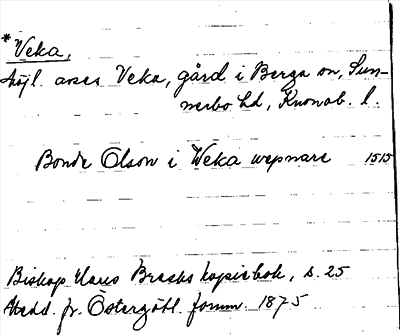 *Veka,
Möjl. avses Veka, gård i Berga sn, Sun-
nerbo hd, Kronob. l.
Bonde Olson i Weka wepnare 1515
Biskop Hans Brasks kopiebok, s. 25
Medd. fr. Östergötl. fornm. 1875